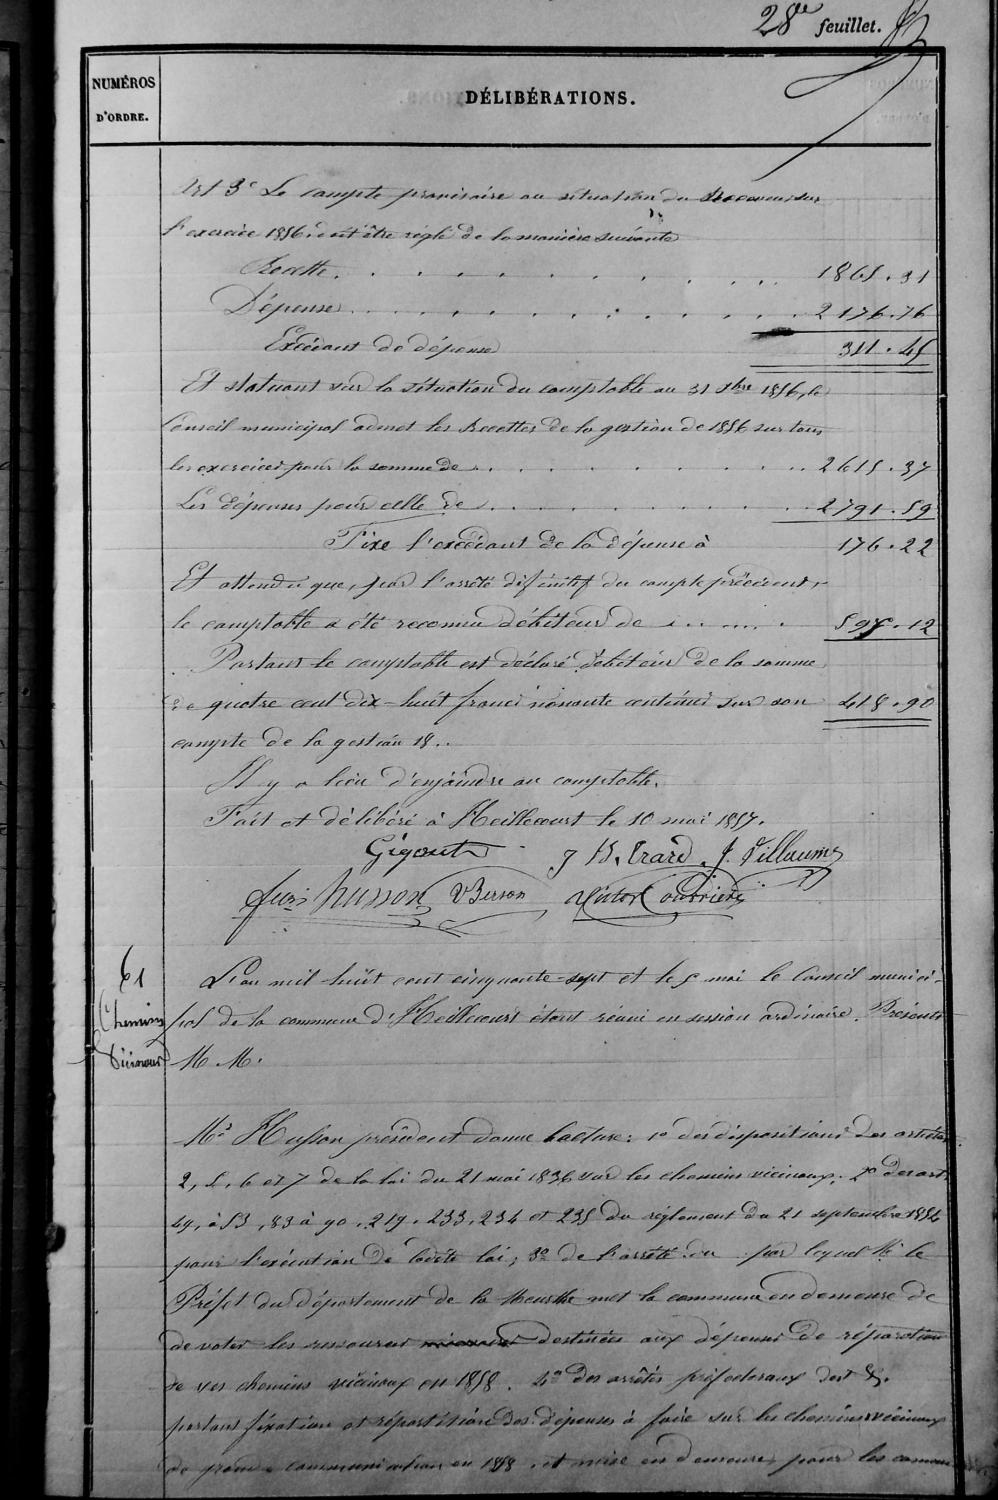 28e feuillet.
NUMÉROS
D'ORDRE.
DÉLIBÉRATIONS.
Art 3e Le compte provisoire ou situation du Receveur sur
l'exercice 1856. doit être réglé de la manière suivante
Recette . . . . . . . . . . . . 1865.31
Dépense . . . . . . . . . . . . 2176.76
Excédant de dépense 311.45
Et statuant sur la situation du comptable au 31 Xbre 1856, le
Conseil municipal admet les Recettes de la gestion de 1856 sur tous
les exercices pour la somme de . . . . . . . . . 2615.37
Les dépenses pour celle de . . . . . . . . . 2791.59
Fixe l'excédant de la dépense à 176.22
Et attendu que, par l'arrêté définitif du compte précédent,
le comptable a été reconnu débiteur de . . . . . . 595.12
Partant le comptable est déclaré débiteur de la somme
de quatre cent dix-huit francs nonante centimes sur son 418.90
compte de la gestion 18..
Il y a lieu d'enjoindre au comptable.
Fait et délibéré à Heillecourt le 10 mai 1857.
Gigout J. B. Trard. J. Villaume
husson VBerson Victor Courrier
61
Chemins
Vicinaux
L'an mil huit cent cinquante-sept et le 5 mai le Conseil munici-
pal de la commune d'Heillecourt étant réuni en session ordinaire. Présents
M M.
Mr Husson président donne lecture: 1o des dispositions des articles
2, 5, 6 et 7 de la loi du 21 mai 1836 sur les chemins vicinaux; 2o des art.
49, à 53, 83 à 90, 219, 233, 234 et 235 du réglement du 21 septembre 1854
pour l'exécution de ladite loi; 3o de l'arrêté du par lequel Mr le
Préfet du département de la Meurthe met la commune en demeure de
de voter les ressources destinées aux dépenses de réparation
de ses chemins vicinaux en 1858. 4o des arrêtés préfectoraux des &.
portant fixation et répartition des dépenses à faire sur les chemins vicinaux
de grande communication en 1858, et mise en demeure pour les